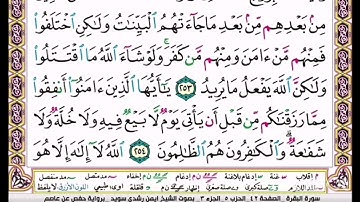 مِنۢ بَعْدِهِم مِّنۢ بَعْدِ مَا جَآءَتْهُمُ ٱلْبَيِّنَٰتُ وَلَٰكِنِ ٱخْتَلَفُوا۟
فَمِنْهُم مَّنْ ءَامَنَ وَمِنْهُم مَّن كَفَرَ ۚ وَلَوْ شَآءَ ٱللَّهُ مَا ٱقْتَتَلُوا۟
وَلَٰكِنَّ ٱللَّهَ يَفْعَلُ مَا يُرِيدُ ٢٥٣ يَٰٓأَيُّهَا ٱلَّذِينَ ءَامَنُوٓا۟ أَنفِقُوا۟
مِمَّا رَزَقْنَٰكُم مِّن قَبْلِ أَن يَأْتِىَ يَوْمٌ لَّا بَيْعٌ فِيهِ وَلَا خُلَّةٌ وَلَا
شَفَٰعَةٌ ۗ وَٱلْكَٰفِرُونَ هُمُ ٱلظَّٰلِمُونَ ٢٥٤ ٱللَّهُ لَآ إِلَٰهَ إِلَّا هُوَ
سورة البقرة . الصفحة ٤٢ . الجزء ٣ . بصوت الشيخ ايمن رشدي سويد . برواية حفص عن عاصم